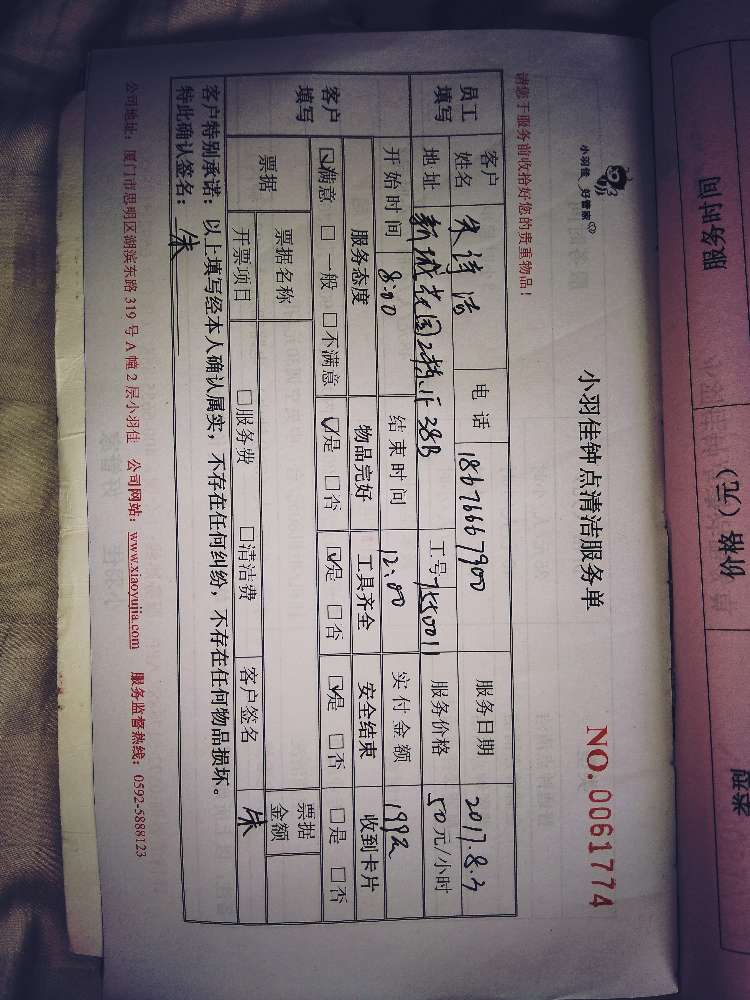 小羽佳 好管家
小羽佳钟点清洁服务单
NO. 0061774
请您于服务前收拾好您的贵重物品！
员工填写 客户姓名 朱诗洁 电话 18676667900 服务日期 2017.8.3
地址 新城花园2栋 28B 工号 服务价格 50元/小时
开始时间 8:00 结束时间 12:00 实付金额 199元
客户填写 服务态度 物品完好 工具齐全 安全结束 收到卡片
☑满意 □一般 □不满意 ☑是 □否 ☑是 □否 ☑是 □否 □是 □否
票据 票据名称 票据金额
开票项目 □服务费 □清洁费 客户签名 朱
客户特别承诺：以上填写经本人确认属实，不存在任何纠纷，不存在任何物品损坏。
特此确认签名：朱
公司地址：厦门市思明区湖滨东路 319 号 A 幢 2 层小羽佳 公司网站：www.xiaoyujia.com 服务监督热线：0592-5888123
服务时间
价格（元）